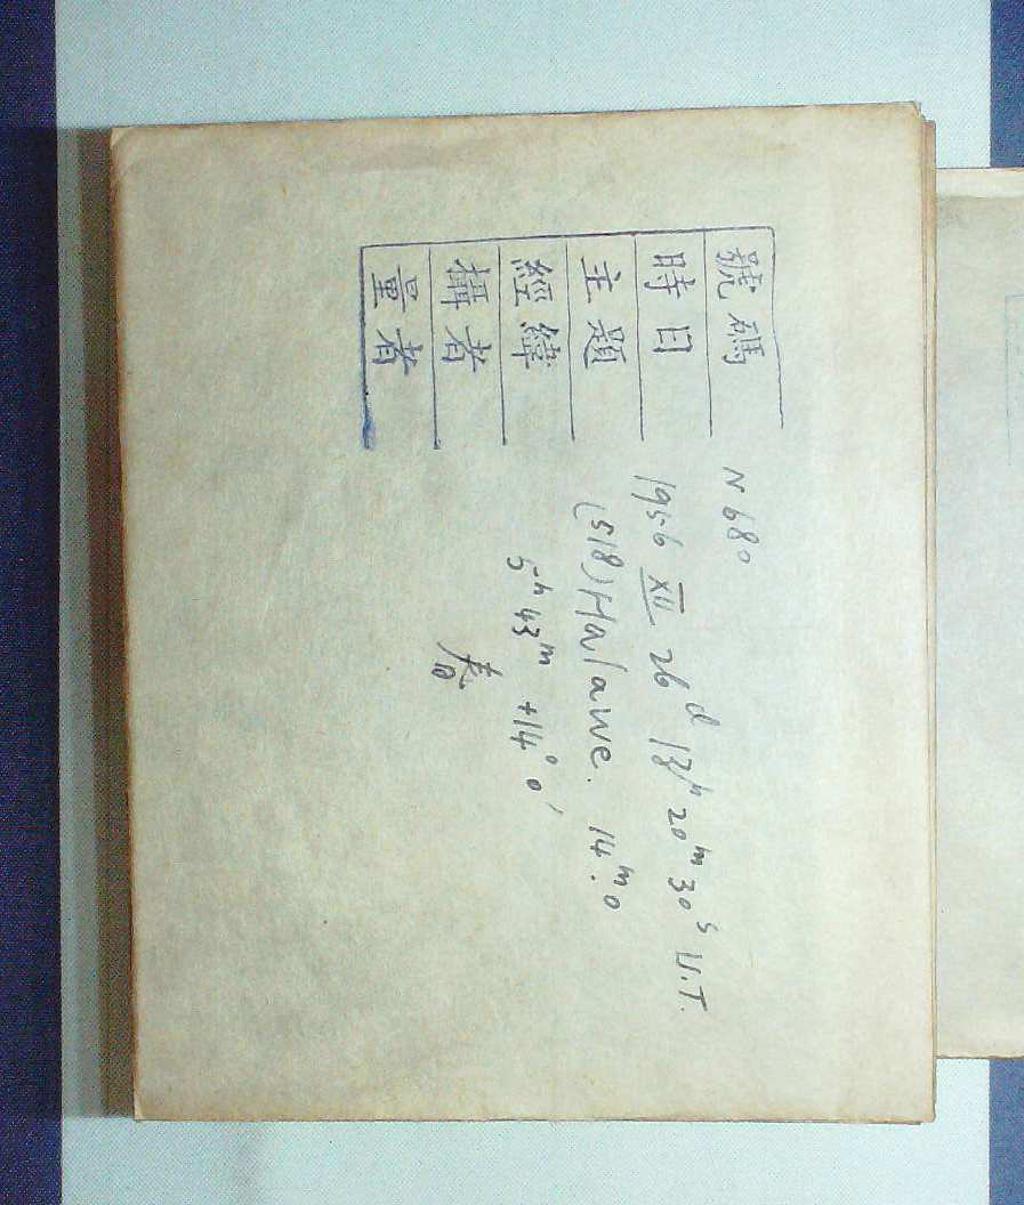 號碼 N 680
時日 1956 XII 26ᵈ 13ʰ 20ᵐ 30ˢ U.T.
主題 (518) Halawe. 14ᵐ.0
經緯 5ʰ 43ᵐ +14° 0′
攝者
量者